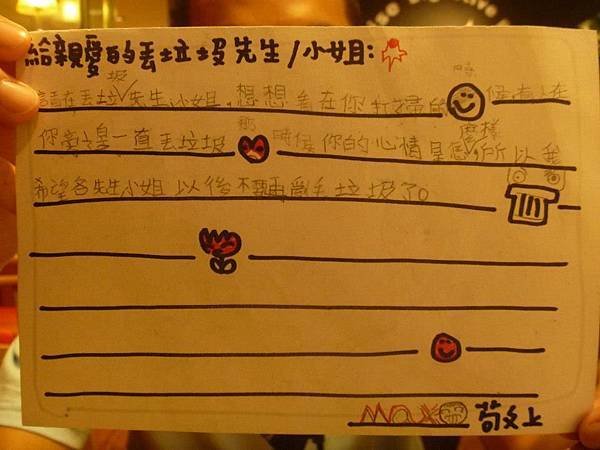 給親愛的丟垃圾先生/小姐:
請在丟垃圾先生小姐,想想看在你打掃的時候有人在
你旁邊一直丟垃圾那時候你的心情是怎麼樣所以我
希望各先生小姐以後不要再亂丟垃圾了。
Max 敬上